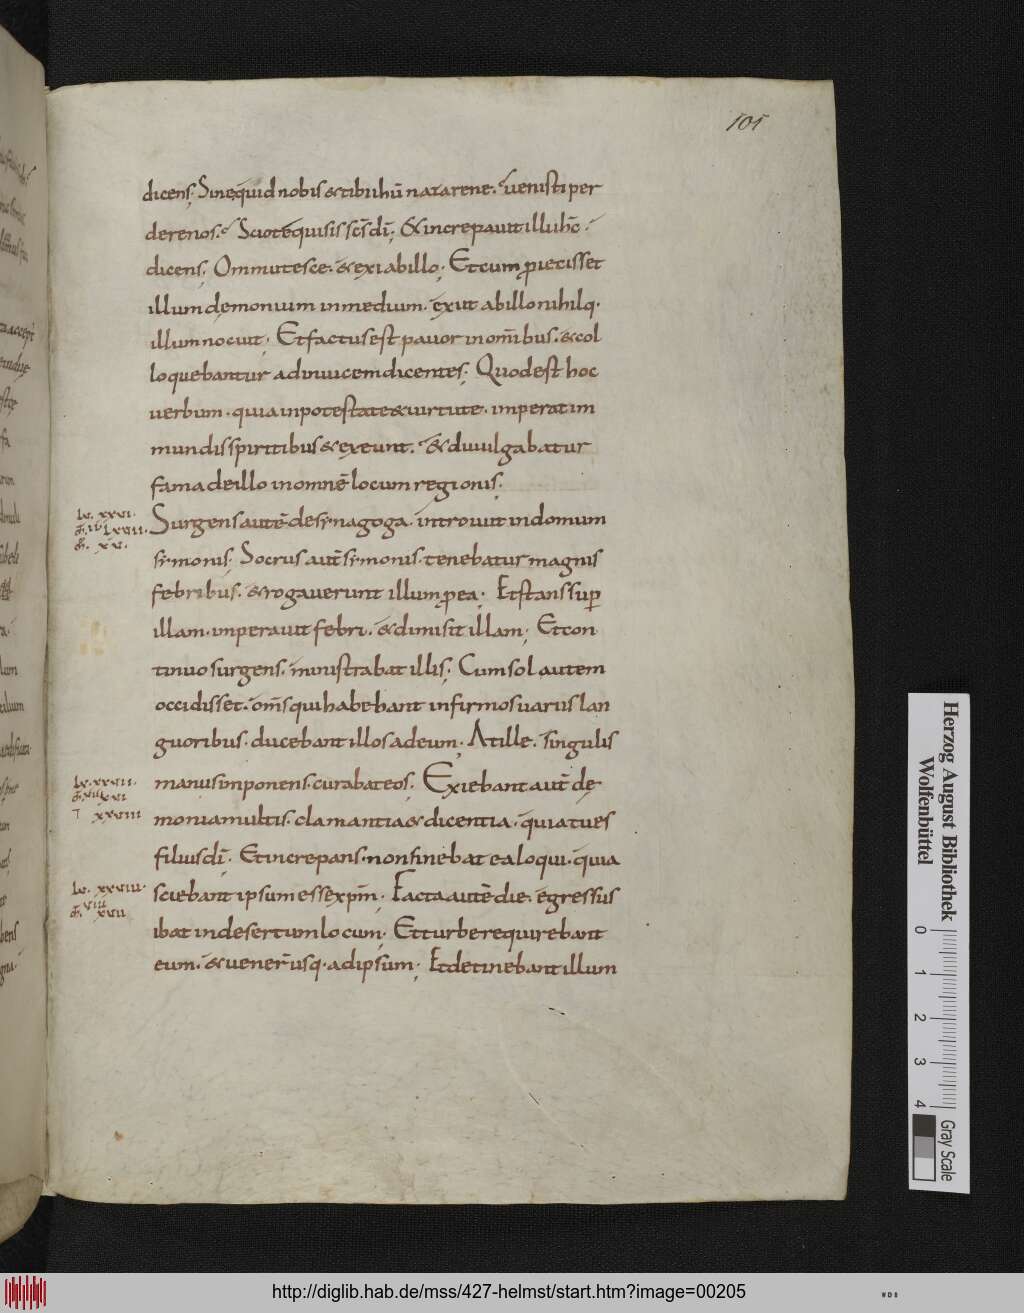 101
dicens; Sine quid nobis & tibi ihū nazarene. uenisti per
dere nos. Scio te quis sis scs dī; & increpauit illū ihc
dicens; Ommutesce. & exi ab illo; Et cum piecisset
illum demonium in medium. exiit ab illo nihilq.
illum nocuit; Et factus est pauor in omībus. & col
loquebantur ad inuicem dicentes; Quod est hoc
uerbum. quia in potestate & uirtute. imperat im
mundis spiritibus & exeunt. & diuulgabatur
fama de illo in omnē locum regionis;
Surgens autē de synagoga. introiuit in domum
symonis; Socrus autē symonis. tenebatur magnis
febribus. & rogauerunt illum p ea; Et stans sup
illam. imperauit febri. & dimisit illam; Et con
tinuo surgens. ministrabat illis; Cum sol autem
occidisset. omīs qui habebant infirmos uariis lan
guoribus. ducebant illos ad eum; At ille. singulis
manus imponens. curabat eos; Exiebant autē de
monia multis. clamantia & dicentia. quia tu es
filius dī; Et increpans. non sinebat ea loqui. quia
sciebant ipsum esse xpm̄; Facta autē die. egressus
ibat in desertum locum; Et turbe requirebant
eum. & uener̄ usq. ad ipsum; Et detinebant illum
Herzog August Bibliothek
Wolfenbüttel
0 1 2 3 4
Gray Scale
http://diglib.hab.de/mss/427-helmst/start.htm?image=00205